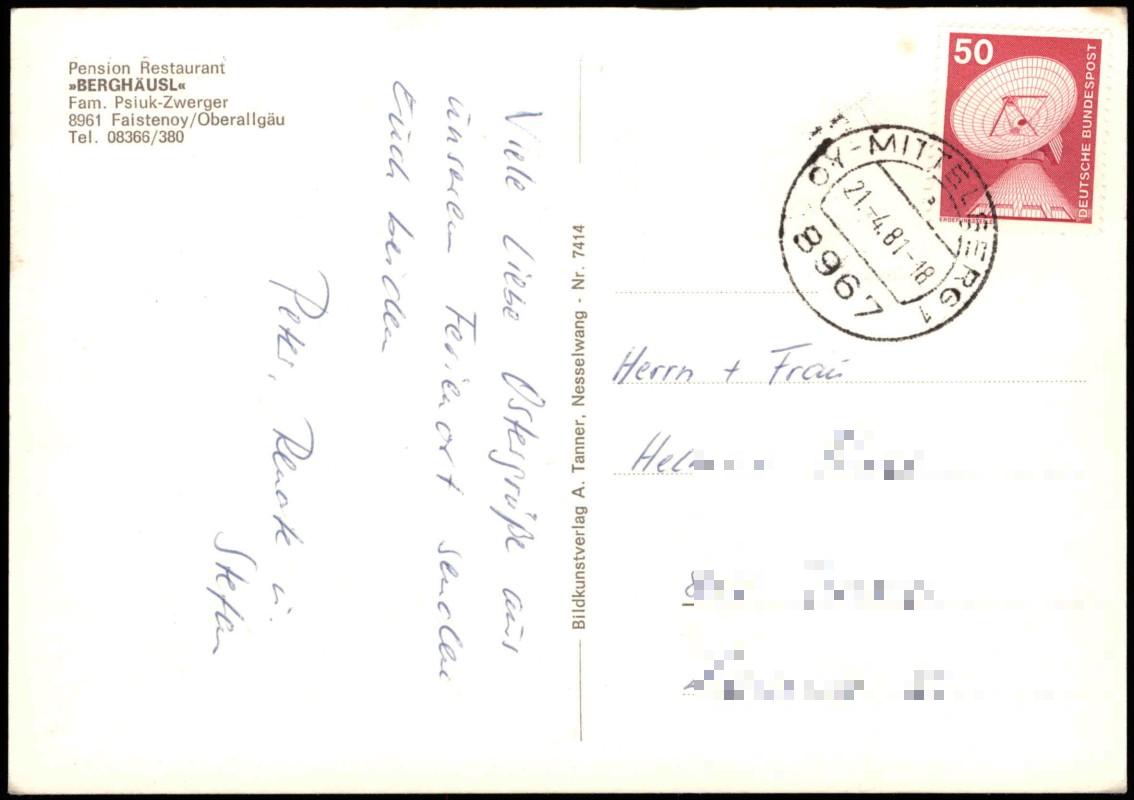 Pension Restaurant
»BERGHÄUSL«
Fam. Psiuk-Zwerger
8961 Faistenoy/Oberallgäu
Tel. 08366/380
Viele liebe Ostergrüße aus
unserem Ferienort senden
Euch beiden
Peter, Renate u.
Stefan
Bildkunstverlag A. Tanner, Nesselwang - Nr. 7414
50
DEUTSCHE BUNDESPOST
OY-MITTELBERG 1
21.-4.81-18
8967
Herrn + Frau